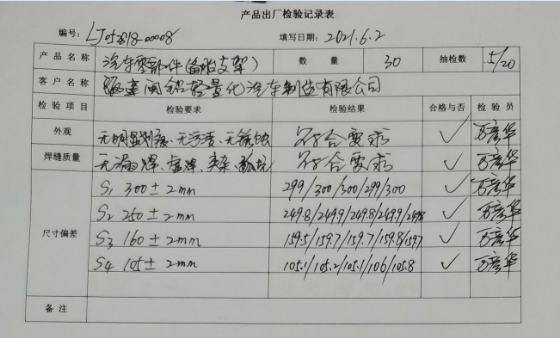 产品出厂检验记录表
编号: LJ053818-00008 填写日期: 2021.6.2
产品名称 汽车零部件(备胎支架) 数量 30 抽检数 5/20
客户名称 福建闽铝轻量化汽车制造有限公司
检验项目 检验要求 检验结果 合格与否 检验员
外观 无明显划痕、无污渍、无锈蚀 符合要求 ✓
焊缝质量 无漏焊、虚焊、夹渣、 符合要求 ✓
尺寸偏差
S1 300±2mm 299/300/300/299/300 ✓
S2 250±2mm 249.8/249.9/249.8/249.9/249.8 ✓
S3 160±2mm 159.5/159.7/159.7/159.8/159.7 ✓
S4 105±2mm 105.1/105.2/105.1/106/105.8 ✓
备注